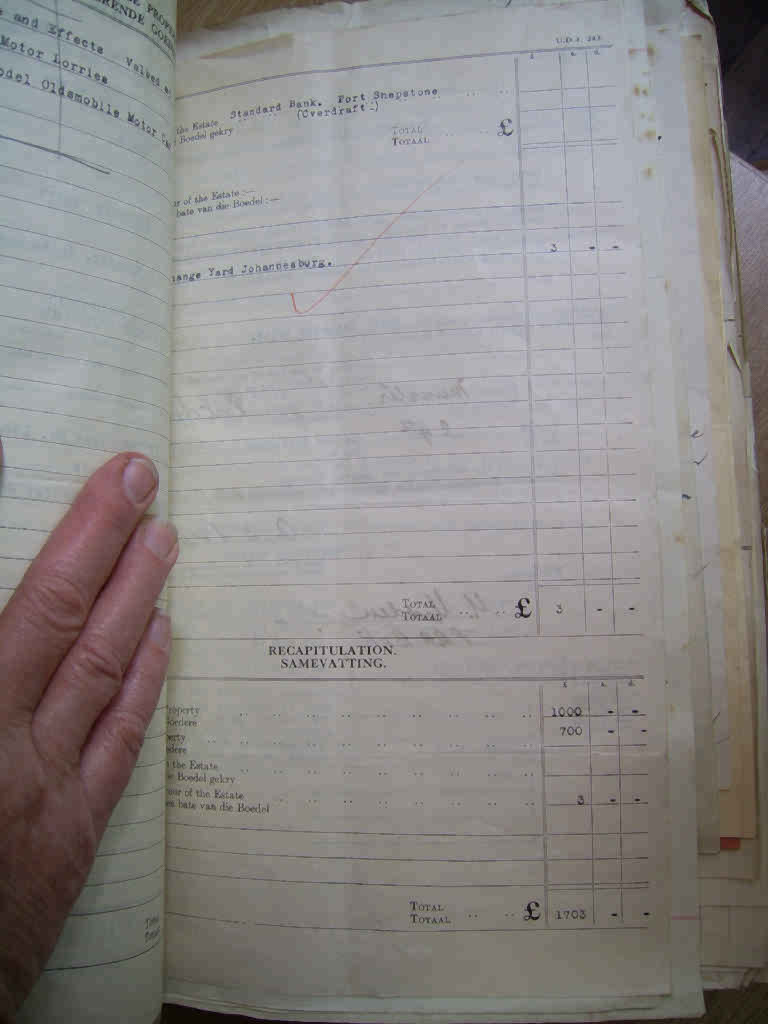 e and Effects Valued at
Motor Lorries
odel Oldsmobile Motor Ca
Total
U.D.J. 243.
£ s. d.
the Estate Standard Bank. Port Shepstone
(Overdraft:)
Boedel gekry
TOTAL
TOTAAL £
our of the Estate:—
bate van die Boedel:—
3 - -
hange Yard Johannesburg.
TOTAL
TOTAAL £ 3 - -
RECAPITULATION.
SAMEVATTING.
£ s. d.
roperty 1000 - -
oedere
erty 700 - -
edere
the Estate
e Boedel gekry
our of the Estate 3 - -
en bate van die Boedel
TOTAL
TOTAAL £ 1703 - -